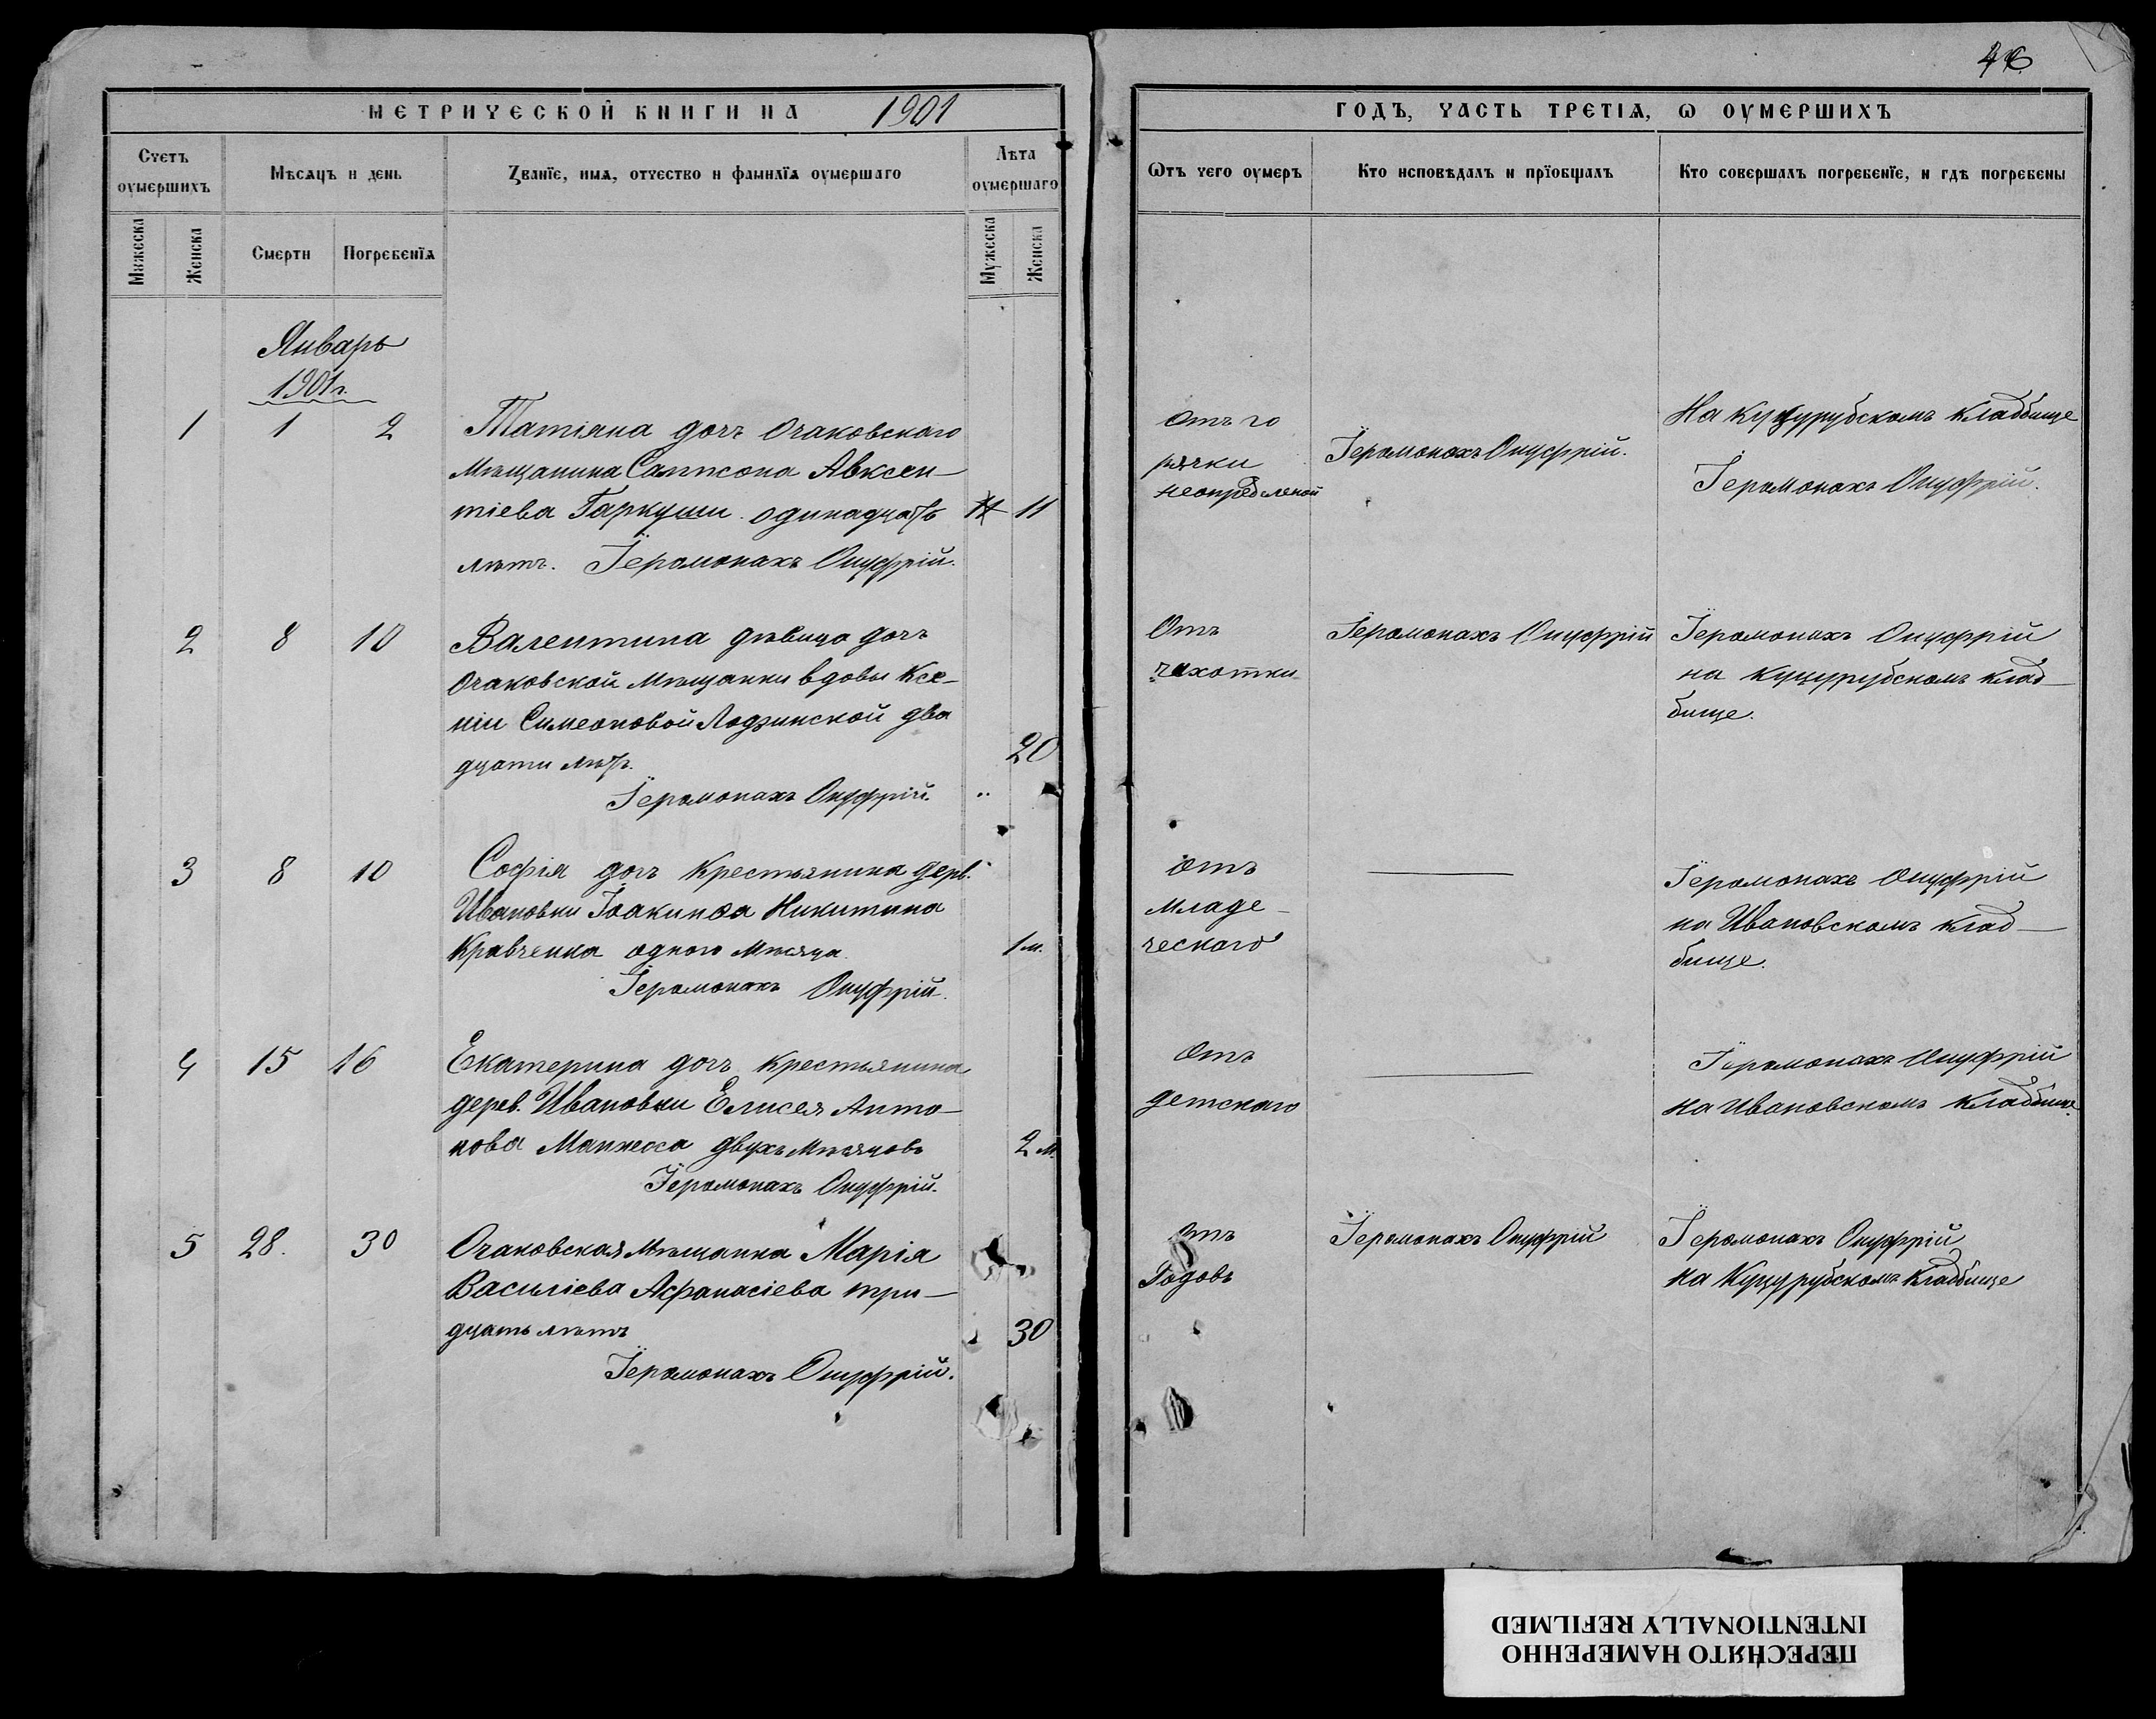 46
МЕТРИЧЕСКОЙ КНИГИ НА 1901
ГОДЪ, ЧАСТЬ ТРЕТІѦ, Ѡ ОУМЕРШИХЪ
Счетъ оумершихъ
Мѣсяцъ и день
Званїе, имѧ, отчество и фамилїѧ оумершаго
Лѣта оумершаго
Ѿтъ чего оумеръ
Кто исповѣдалъ и прїобщалъ
Кто совершалъ погребенїе, и гдѣ погребены
Мужеска
Женска
Смерти
Погребенїѧ
Мужеска
Женска
Январь
1901 г.
1 1 2
Татіяна дочь Очаковскаго
Мѣщанина Сампсона Авксен-
тіева Гаркуши одинадцать 11
лѣтъ. Іеромонахъ Онуфрій.
отъ го
рячки
неопределеной
Іеромонахъ Онуфрій.
На Куцурубскомъ Кладбище
Іеромонахъ Онуфрій.
2 8 10
Валентина дѣвица дочь
Очаковской мѣщанки вдовы Ксе-
ніи Симеоновой Лодзинской два
дцати лѣтъ. 20
Іеромонахъ Онуфрій.
Отъ
чахотки
Іеромонахъ Онуфрій
Іеромонахъ Онуфрій
на Куцурубскомъ клад-
бище.
3 8 10
Софія дочь крестьянина дерв.
Ивановки Іоакинѳа Никитина
Кравченка одного мѣсяца. 1 м.
Іеромонахъ Онуфрій.
отъ
младе-
ческаго
Іеромонахъ Онуфрій
на Ивановскомъ клад-
бище.
4 15 16
Екатерина дочь крестьянина
дерев. Ивановки Елисея Анто-
нова двухъ мѣсяцовъ 2 м.
Іеромонахъ Онуфрій.
Отъ
детскаго
Іеромонахъ Онуфрій
на Ивановскомъ Кладбище.
5 28. 30
Очаковская мѣщанка Марія
Василіева Афанасіева три-
дцать лѣтъ 30
Іеромонахъ Онуфрій.
отъ
Годовъ
Іеромонахъ Онуфрій
Іеромонахъ Онуфрій
на Куцурубскомъ Кладбище
ПЕРЕСНЯТО НАМЕРЕННО
INTENTIONALLY REFILMED